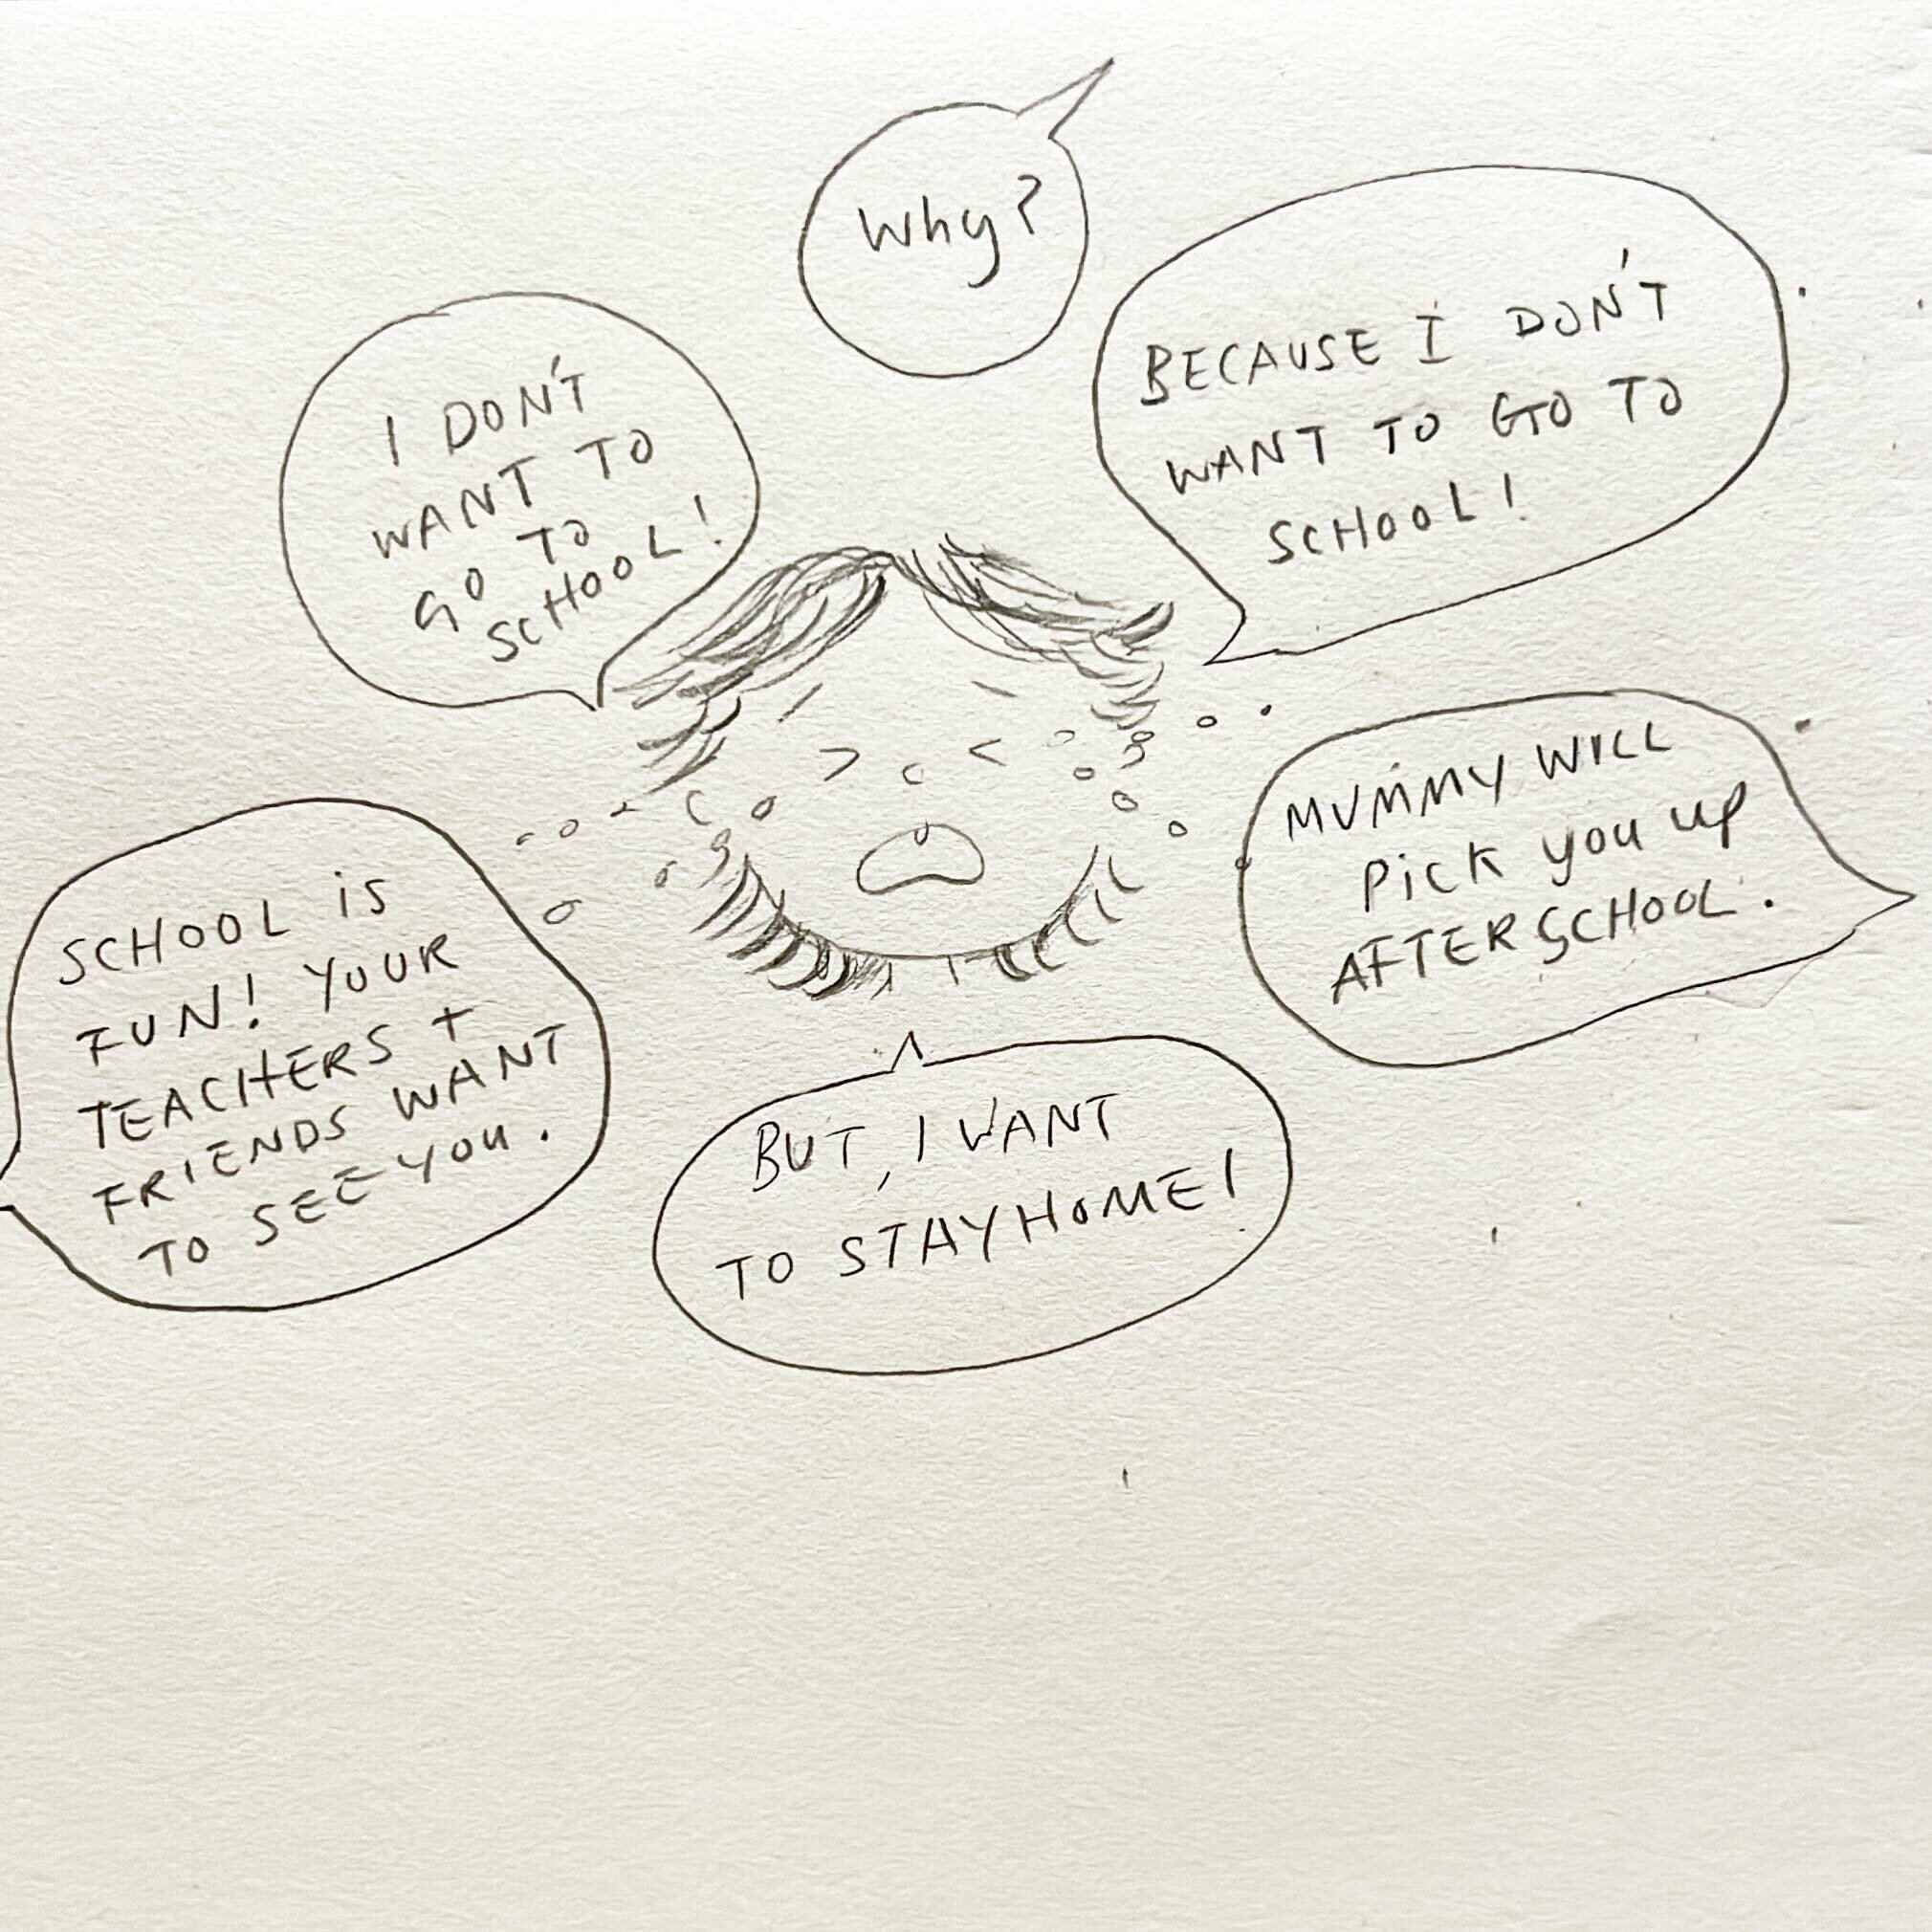 Why?
I DON'T
WANT TO
GO TO
SCHOOL!
BECAUSE I DON'T
WANT TO GO TO
SCHOOL!
SCHOOL is
FUN! YOUR
TEACHERS +
FRIENDS WANT
TO SEE YOU.
MUMMY WILL
PICK you up
AFTER SCHOOL.
BUT, I WANT
TO STAY HOME!